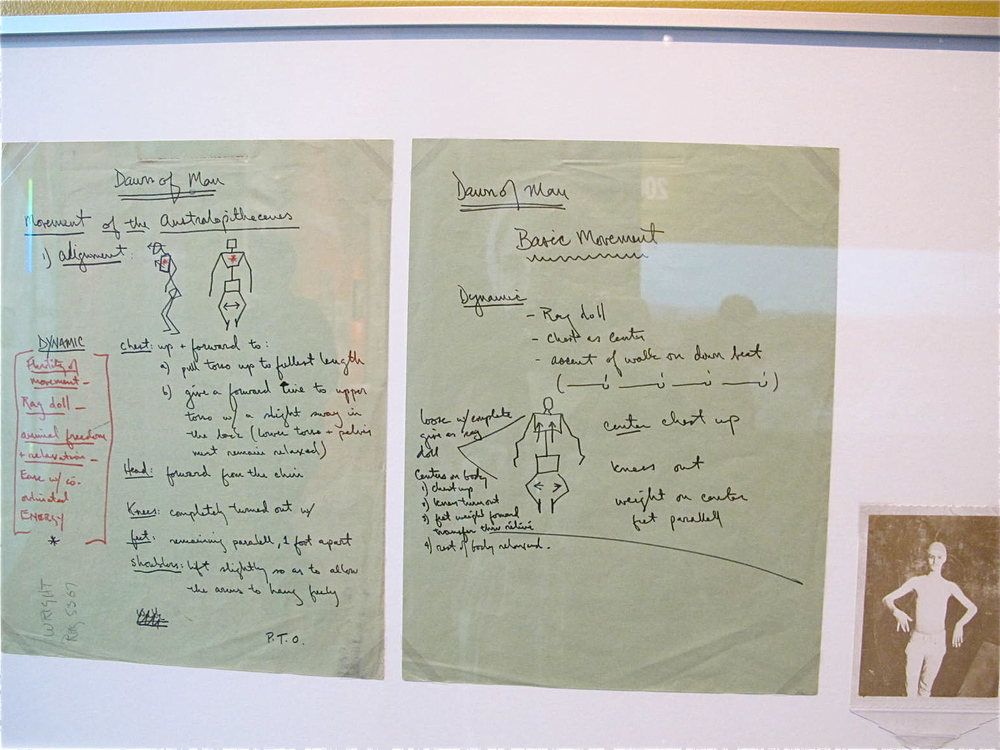 Dawn of Man
Movement of the Australopithecenes
1) alignment:
DYNAMIC
Fluidity of
movement –
Rag doll –
animal freedom
+ relaxation –
Ease w/ co-
ordinated
ENERGY
*
chest: up + forward to:
a) pull torso up to fullest length
b) give a forward line to upper
torso w/ a slight sway in
the back (lower torso + pelvis
must remain relaxed)
Head: forward from the chin
Knees: completely turned out w/
feet: remaining parallel, 1 foot apart
shoulders: lift slightly so as to allow
the arms to hang freely
P.T.O.
WRIGHT
Dawn of Man
Basic Movement
Dynamic
- Rag doll
- chest as center
- accent of walk on down beat
loose w/ complete
give as rag
doll
Centers on body
1) chest up
2) knees turn out
3) feet weight forward
transfer
4) rest of body relaxed.
center chest up
knees out
weight on center
feet parallel